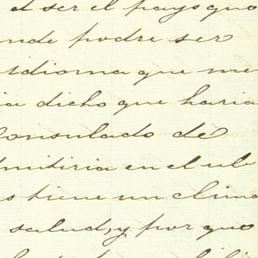 á ser el pays que
nde podre ser
idioma que me
ia dicho que haria
Consulado de
dmitiria en el
s tiene un clima
salud, y por que